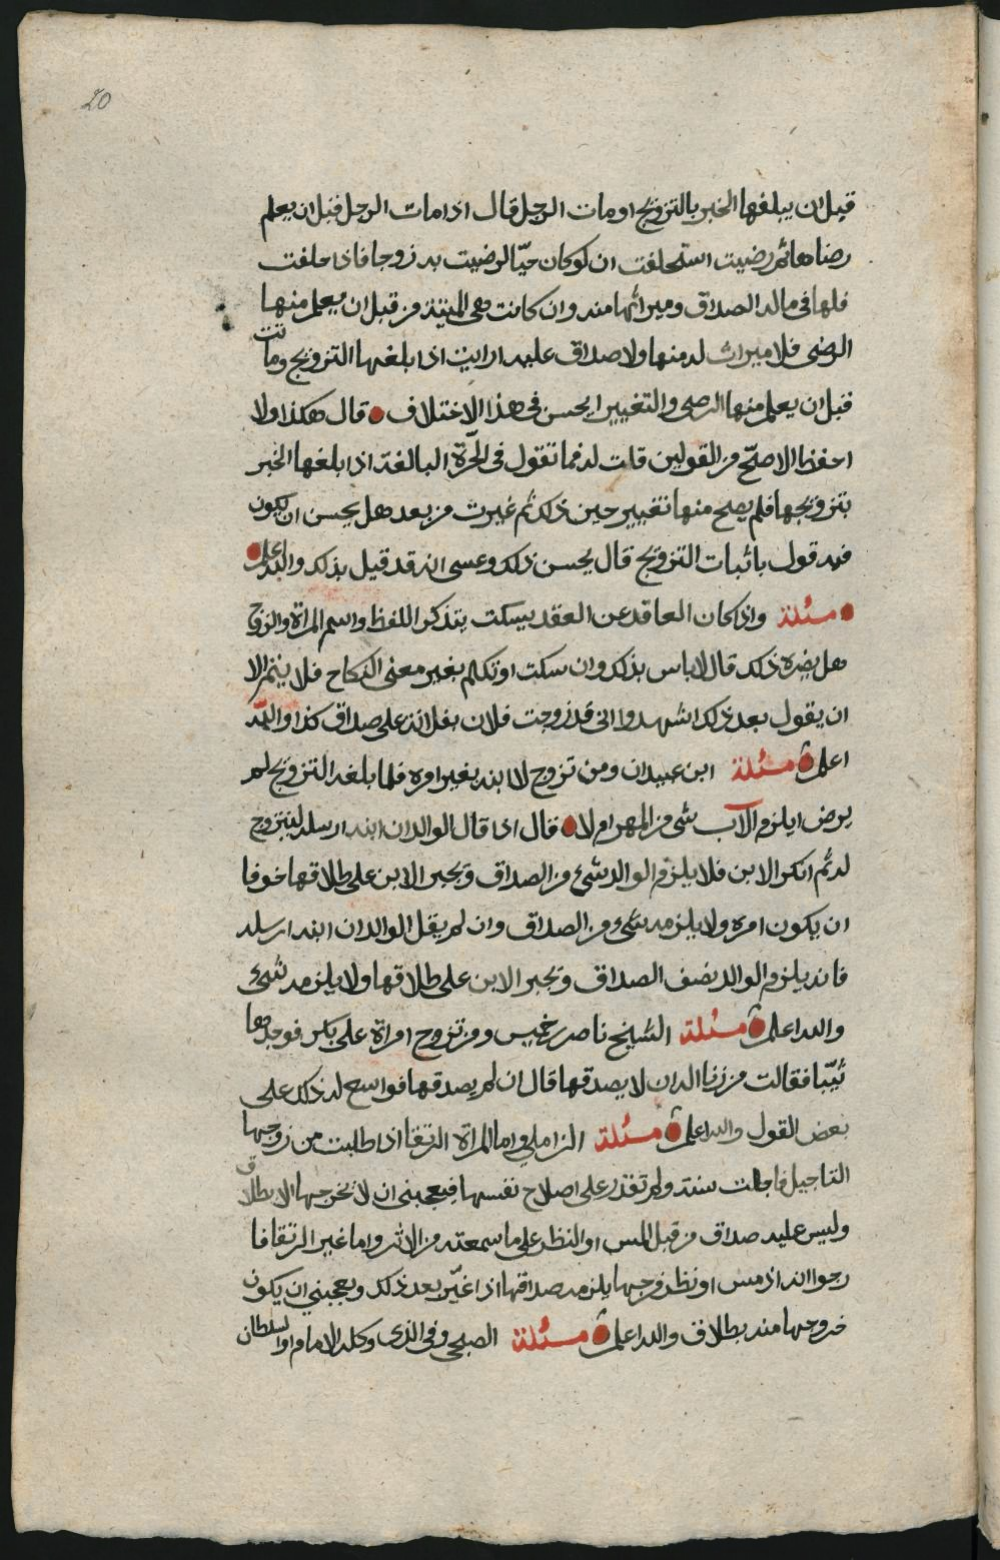 20
قبل ان يبلغها الخبر بالتزويج او مات الرجل قال اذا مات الرجل قبل ان يعلم
رضاها ثم رضيت استحلفت ان لو كان حيّا لرضيت به زوجا فاذا حلفت
فلها في ماله الصداق وميراثها منه وان كانت هي الميتة من قبل ان يعلم منها
الرضى فلا ميراث له منها ولا صداق عليه ارايت اذا بلغها التزويج وماتت
قبل ان يعلم منها الرضى والتغيير ايحسن في هذا الاختلاف • قال هكذا ولا
احفظ الاصحّ من القولين قلت له فما تقول في الحرّة البالغة اذا بلغها الخبر
بتزويجها فلم يصح منها تغيير حين ذلك ثم غيرت من بعد هل يحسن ان يكون
فيه قول باثبات التزويج قال يحسن ذلك وعسى انه قد قيل بذلك والله اعلم •
• مسئلة واذا كان العاقد عن العقد يسكت يتذكر اللفظ واسم المراة والزوج
هل يضره ذلك قال لا باس بذلك وان سكت او تكلم بغير معنى النكاح فلا يتم الا
ان يقول بعد ذلك اشهدوا اني قد زوجت فلان بفلانة على صداق كذا والله
اعلم • مسئلة ابن عبيدان ومن تزوج لابنه بغير امره فلما بلغه التزويج لم
يرض ايلزم الآب شي من المهر ام لا • قال اذا قال الوالد ان ابنه ارسله ليتزوج
له ثم انكر الابن فلا يلزم الوالد شيء من الصداق ويجبر الابن على طلاقها خوفا
ان يكون امره ولا يلزمه شيء من الصداق وان لم يقل الوالد ان ابنه ارسله
فانه يلزم الوالد نصف الصداق ويجبر الابن على طلاقها ولا يلزمه شيء
والله اعلم • مسئلة الشيخ ناصر بن خميس ومن تزوج امراة على بكر فوجدها
ثيّبا فقالت من زنا اله ان لا يصدقها قال ان لم يصدقها فواسع له ذلك على
بعض القول والله اعلم • مسئلة الزاملي واما المراة الرتقا اذا طلبت من زوجها
التاجيل فاجلت سنة ولم تقدر على اصلاح نفسها فيعجبني ان لا تخرجها الا بطلاق
وليس عليه صداق من قبل المس او النظر على ما سمعته من الاثر واما غير الرتقا فا
رجوا انه اذ مس او نظر فرجها يلزمه صداقها اذا غيّر بعد ذلك ويعجبني ان يكون
خروجها منه بطلاق والله اعلم • مسئلة الصبحي وفي الذي وكله الامام او السلطان